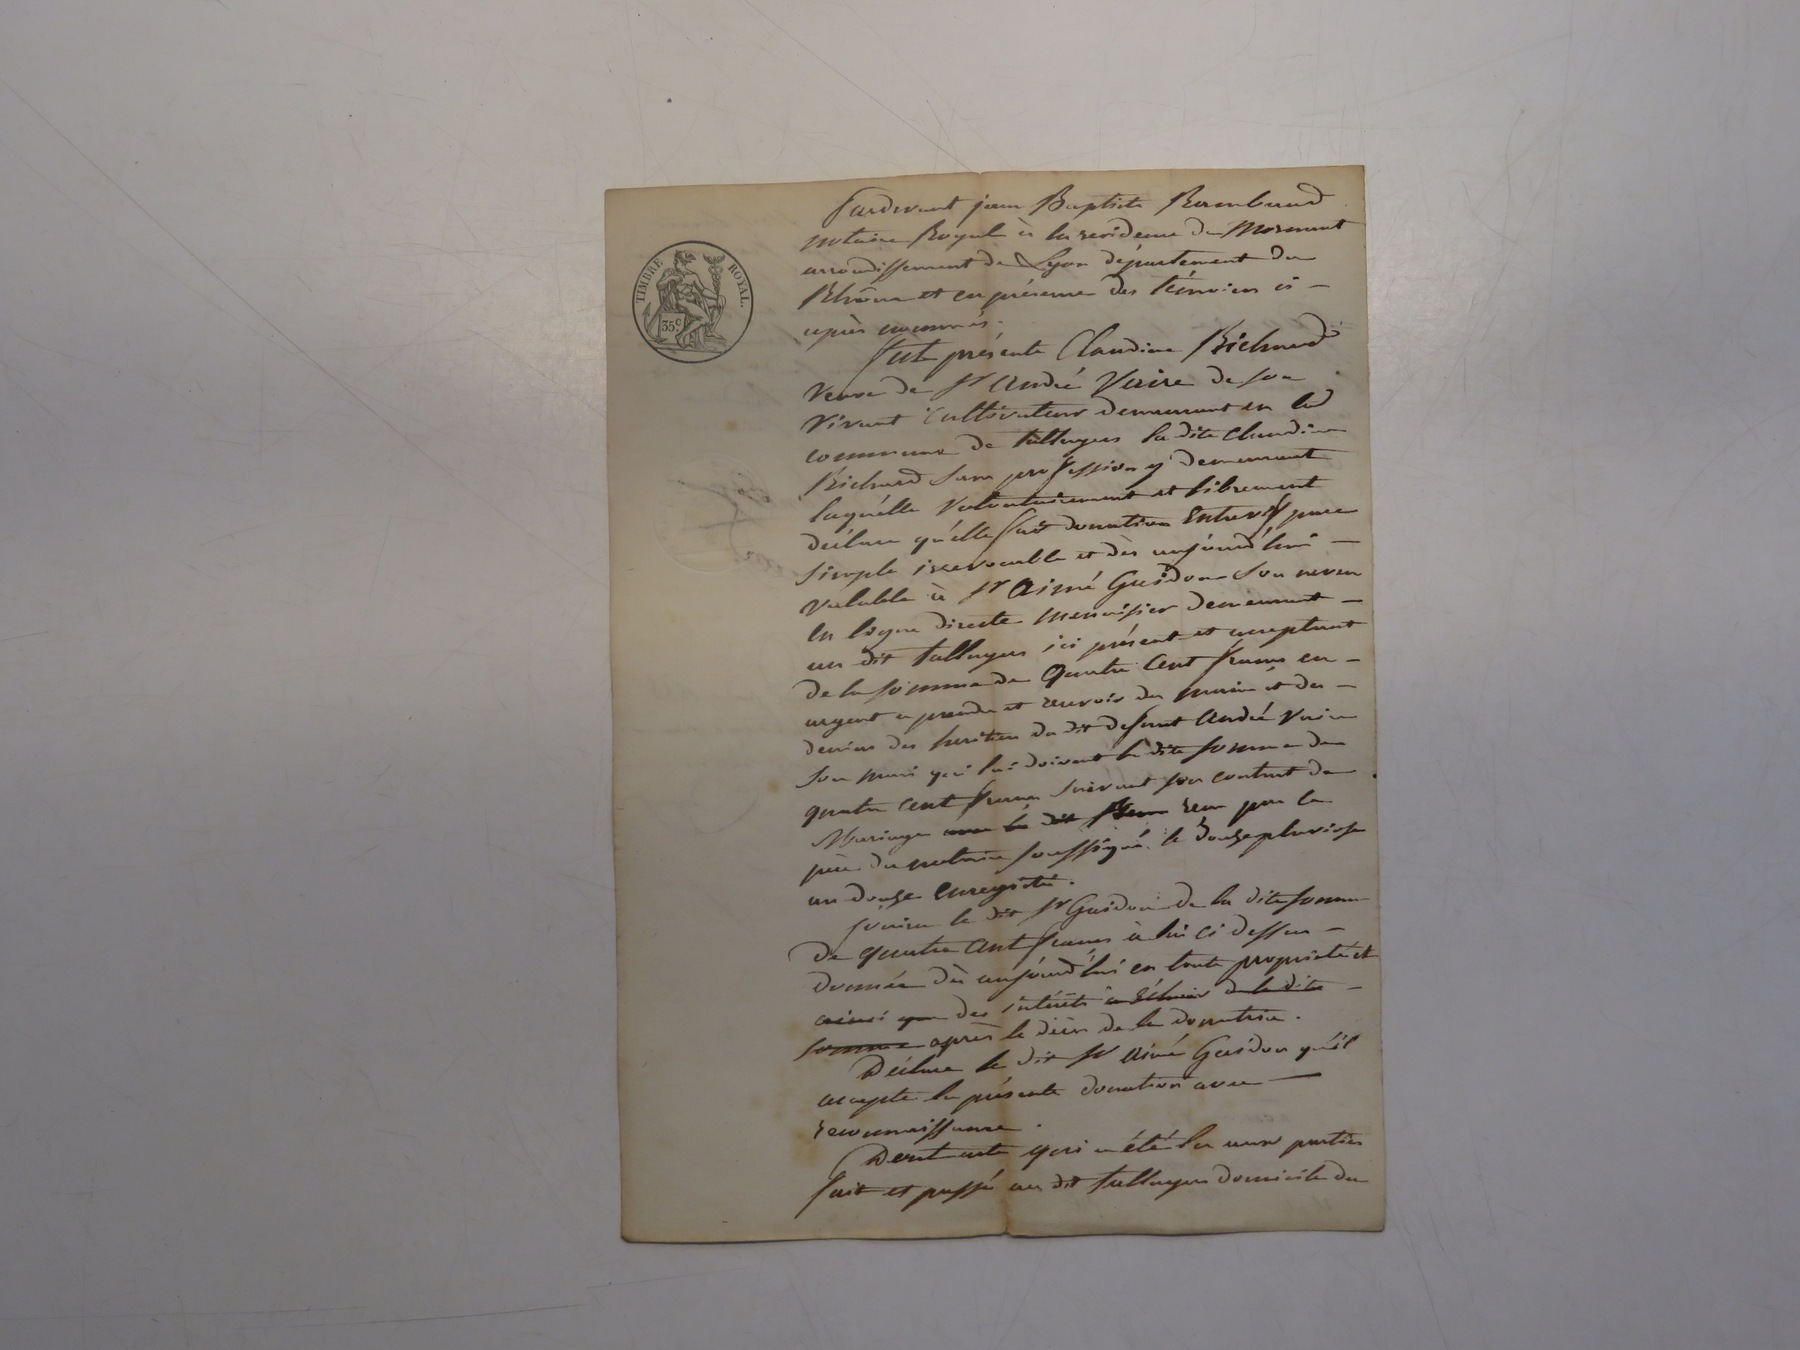 TIMBRE ROYAL.
35c
Pardevant jean Baptiste Rambaud
notaire Royal à la residence de Mornant
arrondissement de Lyon département du
Rhône et en présence des témoins ci –
après nommés.
fut présente Claudine Richard
veuve de Sr André Voire de son
vivant cultivateur demeurant en la
commune de talluyers la dite Claudine
Richard sans profession y demeurant
laquelle volontairement et librement
déclare qu'elle fait donation Entrevifs pure
simple irrevocable et dès aujourd'hui –
valable à Sr Aimé Guidon son neveu
en ligne directe menuisier demeurant –
au dit talluyers ici présent et acceptant
de la somme de quatre cent francs en –
argent a prendre et recevoir des mains et de –
deniers des heritiers du dit defunt André Voire
son mari qui lui doivent la dite somme de
quatre cent francs suivant son contrat de
Mariage avec le dit reçu par le
père du notaire soussigné le douze pluviose
an douze enregistré.
jouira le dit Sr Guidon de la dite somme
de quatre cent francs à lui ci dessus –
donnée dès aujourd'hui en toute propriété et
ainsi que des intérêts à échoir de la dite –
somme après le décès de la donatrice.
Déclare le dit Sr Aimé Guidon qu'il
accepte la présente donation avec —
reconnaissance.
Dont acte qui a été lu aux parties
fait et passé au dit talluyers domicile du